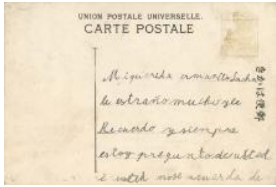 UNION POSTALE UNIVERSELLE.
CARTE POSTALE
きかは便郵
Mi querida
le estraño mucho y le
Recuerdo y siempre
estoy preguntado
usted nose acuerda de